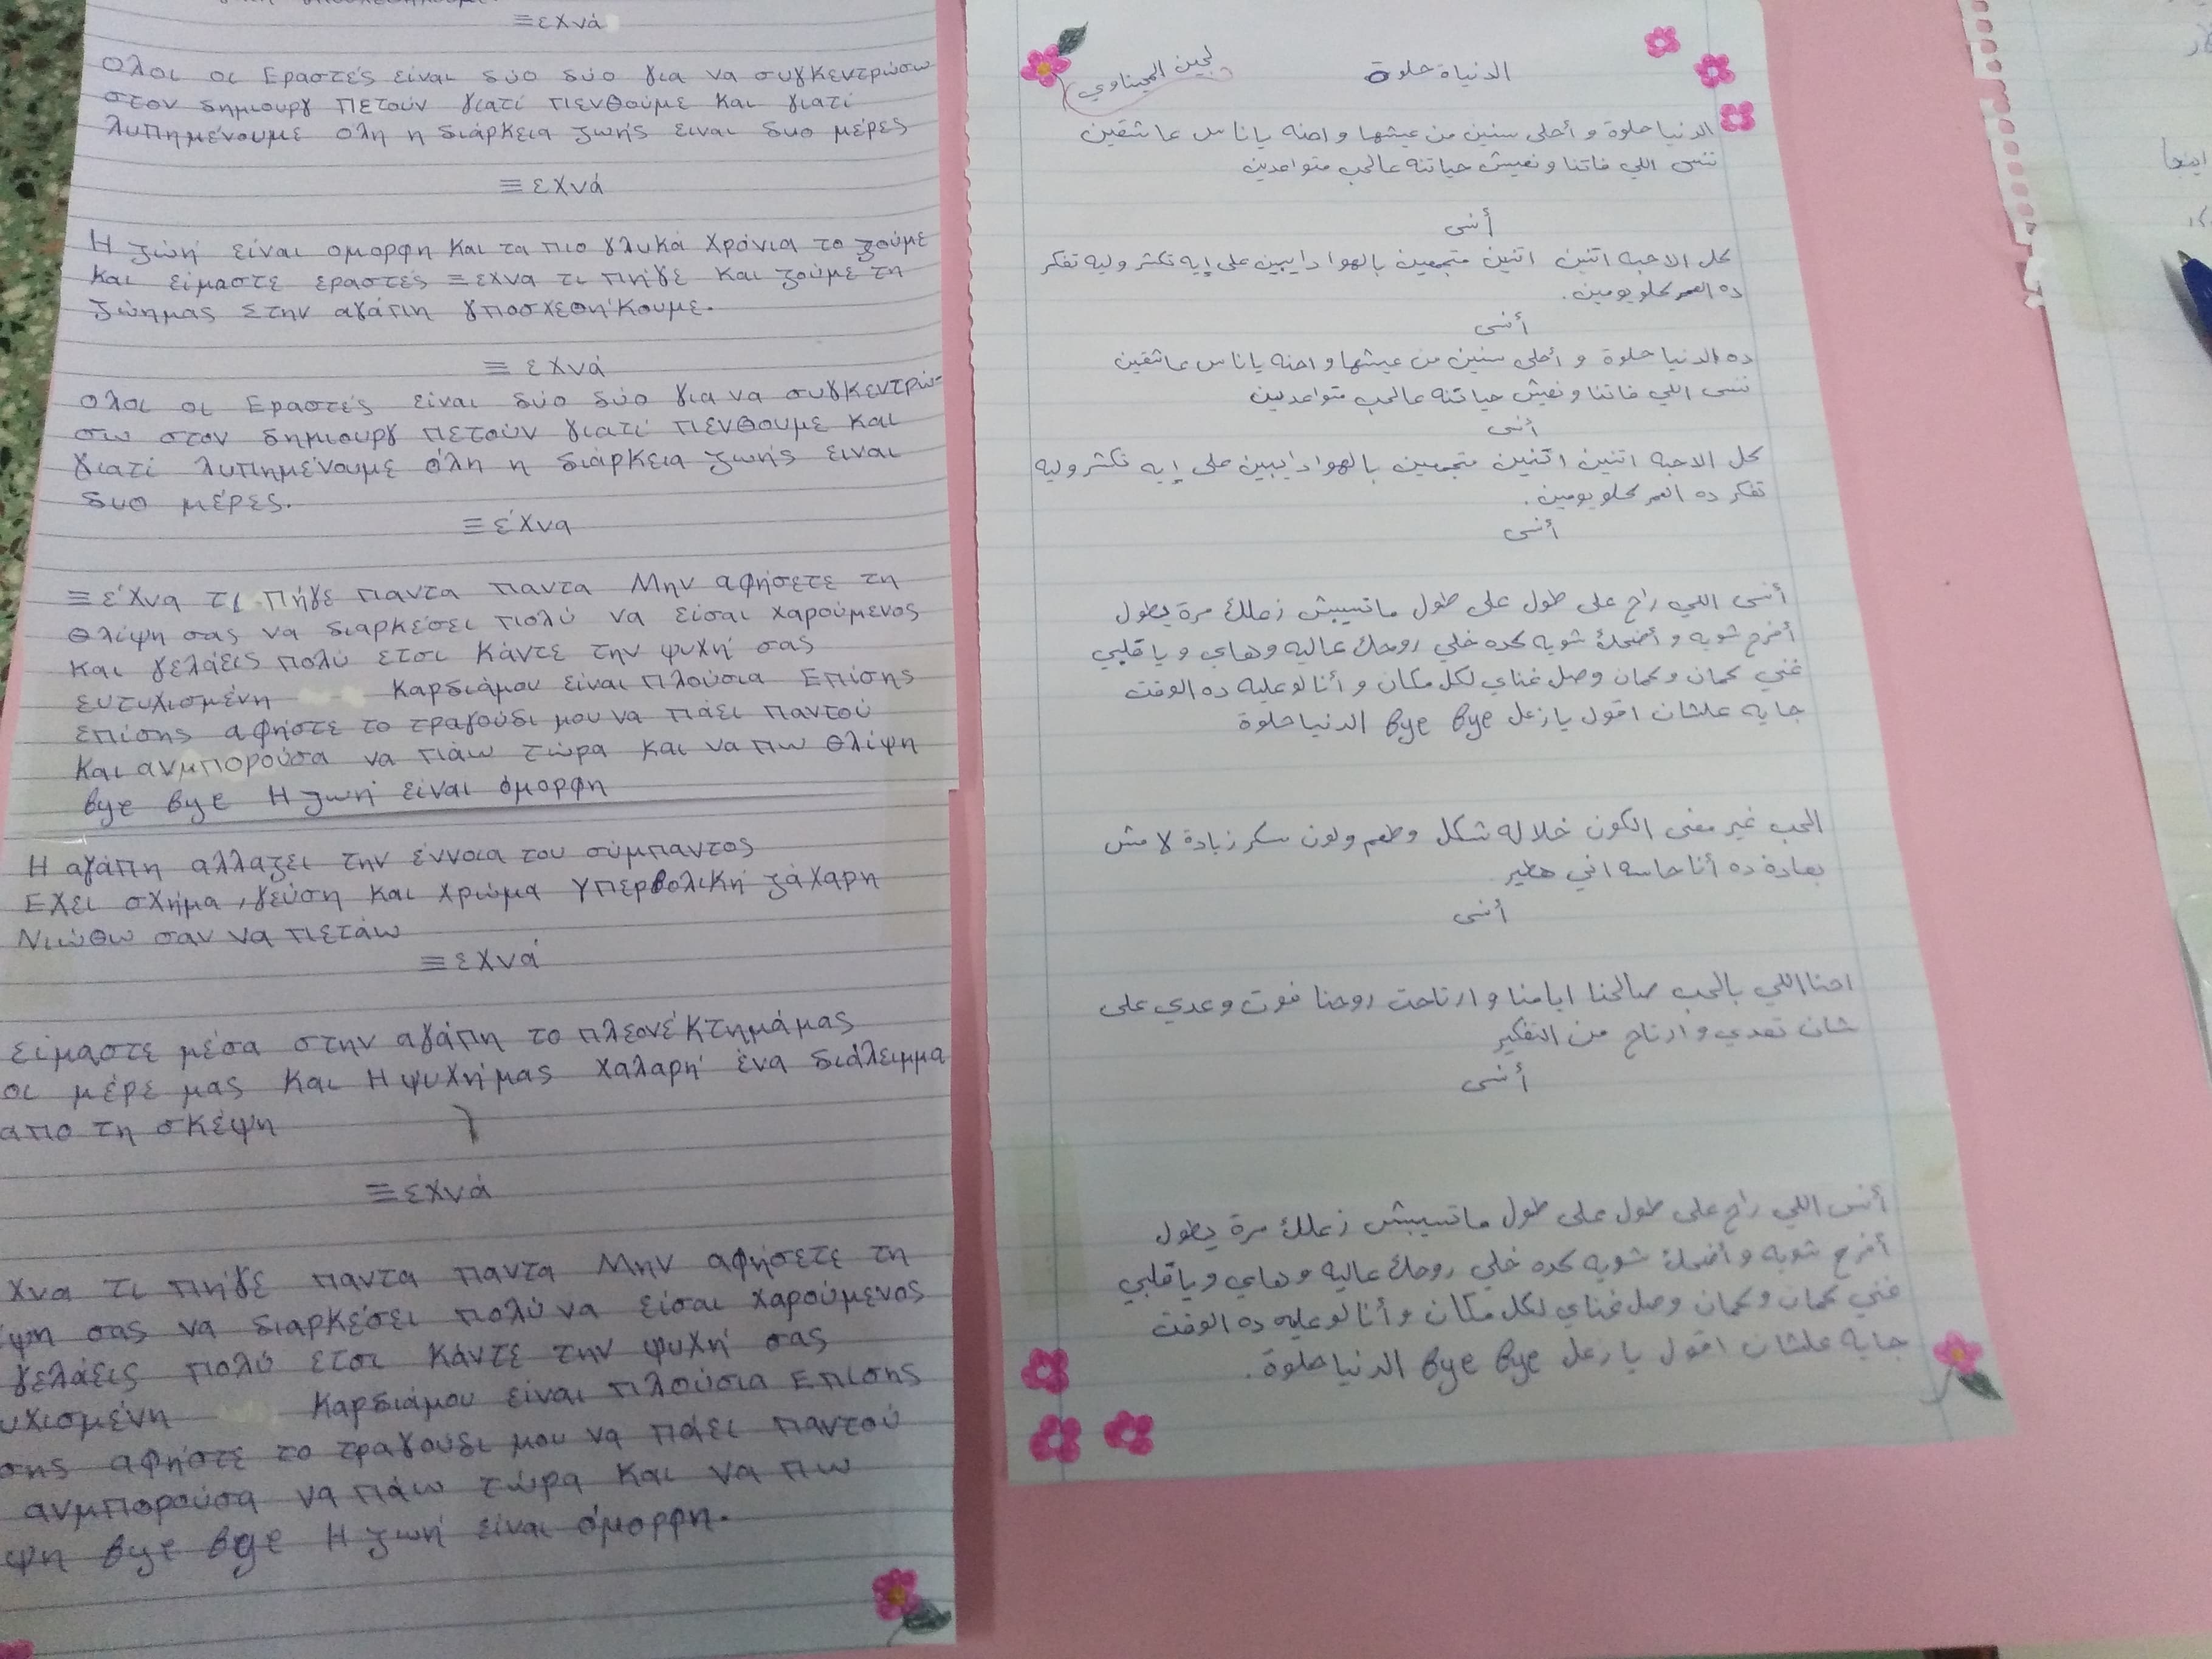 Ξεχνά
Ολοι οι Εραστές είναι δύο δύο για να συγκεντρώσω
στον δημιουργ πετούν γιατί πενθούμε και γιατί
λυπημένουμε ολη η διάρκεια ζωής ειναι δυο μέρες
Ξεχνά
Η ζωή είναι ομορφη και τα πιο γλυκά χρόνια το ζούμε
και είμαστε εραστές Ξεχνα τι πήγε και ζούμε τη
ζώημας Στην αγάπη γποσχεθήκουμε.
Ξεχνά
ολοι οι Εραστές είναι δύο δύο για να συγκεντρώ-
σω στον δημιουργ πετούν γιατί πενθουμε και
γιατί λυπημένουμε όλη η διάρκεια ζωής ειναι
δυο μέρες.
Ξέχνα
Ξέχνα τι πήγε παντα παντα Μην αφήσετε τη
θλίψη σας να διαρκέσει πολύ να είσαι χαρούμενος
και γελάεις πολύ ετσι κάντε την ψυχή σας
ευτυχισμένη καρδιάμου είναι πλούσια Επίσης
επίσης αφήστε το τραγούδι μου να πάει παντού
και ανμπορούσα να πάω τώρα και να πω θλίψη
bye bye Η ζωή είναι όμορφη
Η αγάπη αλλαζει την έννοια του σύμπαντος
Εχει σχήμα, γεύση και χρώμα γπερβολική ζάχαρη
Νιώθω σαν να πετάω
Ξεχνά
είμαστε μέσα στην αγάπη το πλεονέκτημάμας
οι μέρε μας και Η ψυχήμας χαλαρή ένα διάλειμμα
απο τη σκέψη
Ξεχνά
χνα τι πήγε παντα παντα Μην αφήσετε τη
ψη σας να διαρκέσει πολύ να είσαι χαρούμενος
γελάεις πολύ ετσι κάντε την ψυχή σας
υχισμένη καρδιάμου είναι πλούσια Επισης
σης αφήστε το τραγουδι μου να πάει παντού
ανμπορούσα να πάω τώρα και να πω
ψη bye bye Η ζωή είναι όμορφη.
الدنياة حلوة
لجين
الدنيا حلوة و أحلى سنين من عيشها و احنه ياناس عاشقين
ننسى اللي فاتنا و نعيش حياتنه عالحب متواعدين
أنسى
كل الاحبه اتنين اتنين متجمعين بالهوا دايبين على إيه نكتر وليه تفكر
ده العمر كلو يومين.
أنسى
ده الدنيا حلوة و أحلى سنين من عيشها و احنه ياناس عاشقين
ننسى اللي فاتنا و نعيش حياتنه عالحب متواعديين
أنسى
كل الاحبه اتنين اتنين متجمعين بالهوا دايبين على إيه نكتر وليه
تفكر ده العمر كلو يومين.
أنسى
أنسى اللي راح على طول على طول ماتسيبش زعلك مرة يطول
أفرح شويه و أضحك شويه كده خلي روحك عاليه وهاي ويا قلبي
غني كمان و كمان وصل غناي لكل مكان و أنا لو عليه ده الوقت
جايه علشان اقول يا زعل bye bye الدنيا حلوة
الحب غير معنى الكون خلاله شكل وطعم ولون سكر زيادة لا مش
بعادة ده أنا حاسه اني هطير
أنسى
احنا اللي بالحب صالحنا ايامنا و ارتاحت روحنا فوت وعدي على
شان تعدي و ارتاح من التفكير
أنسى
أنس اللي راح على طول على طول ماتسيبش زعلك مرة يطول
أفرح شويه و أضحك شويه كده خلي روحك عاليه وهاي ويا قلبي
غني كمان و كمان وصل غناي لكل مكان و أنا لو عليه ده الوقت
جايه علشان اقول يا زعل bye bye الدنيا حلوة.